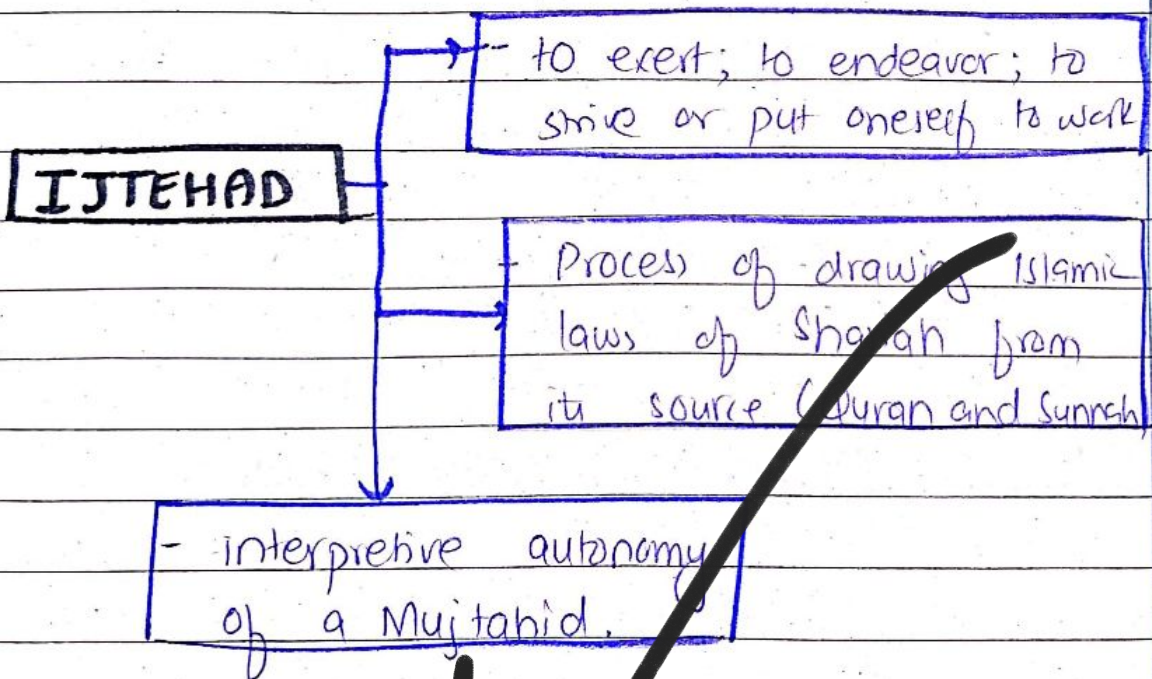 - to exert; to endeavor; to
strive or put oneself to work
IJTEHAD
- Process of drawing Islamic
laws of Shariah from
its source (Quran and Sunnah)
- interpretive autonomy
of a Mujtahid.